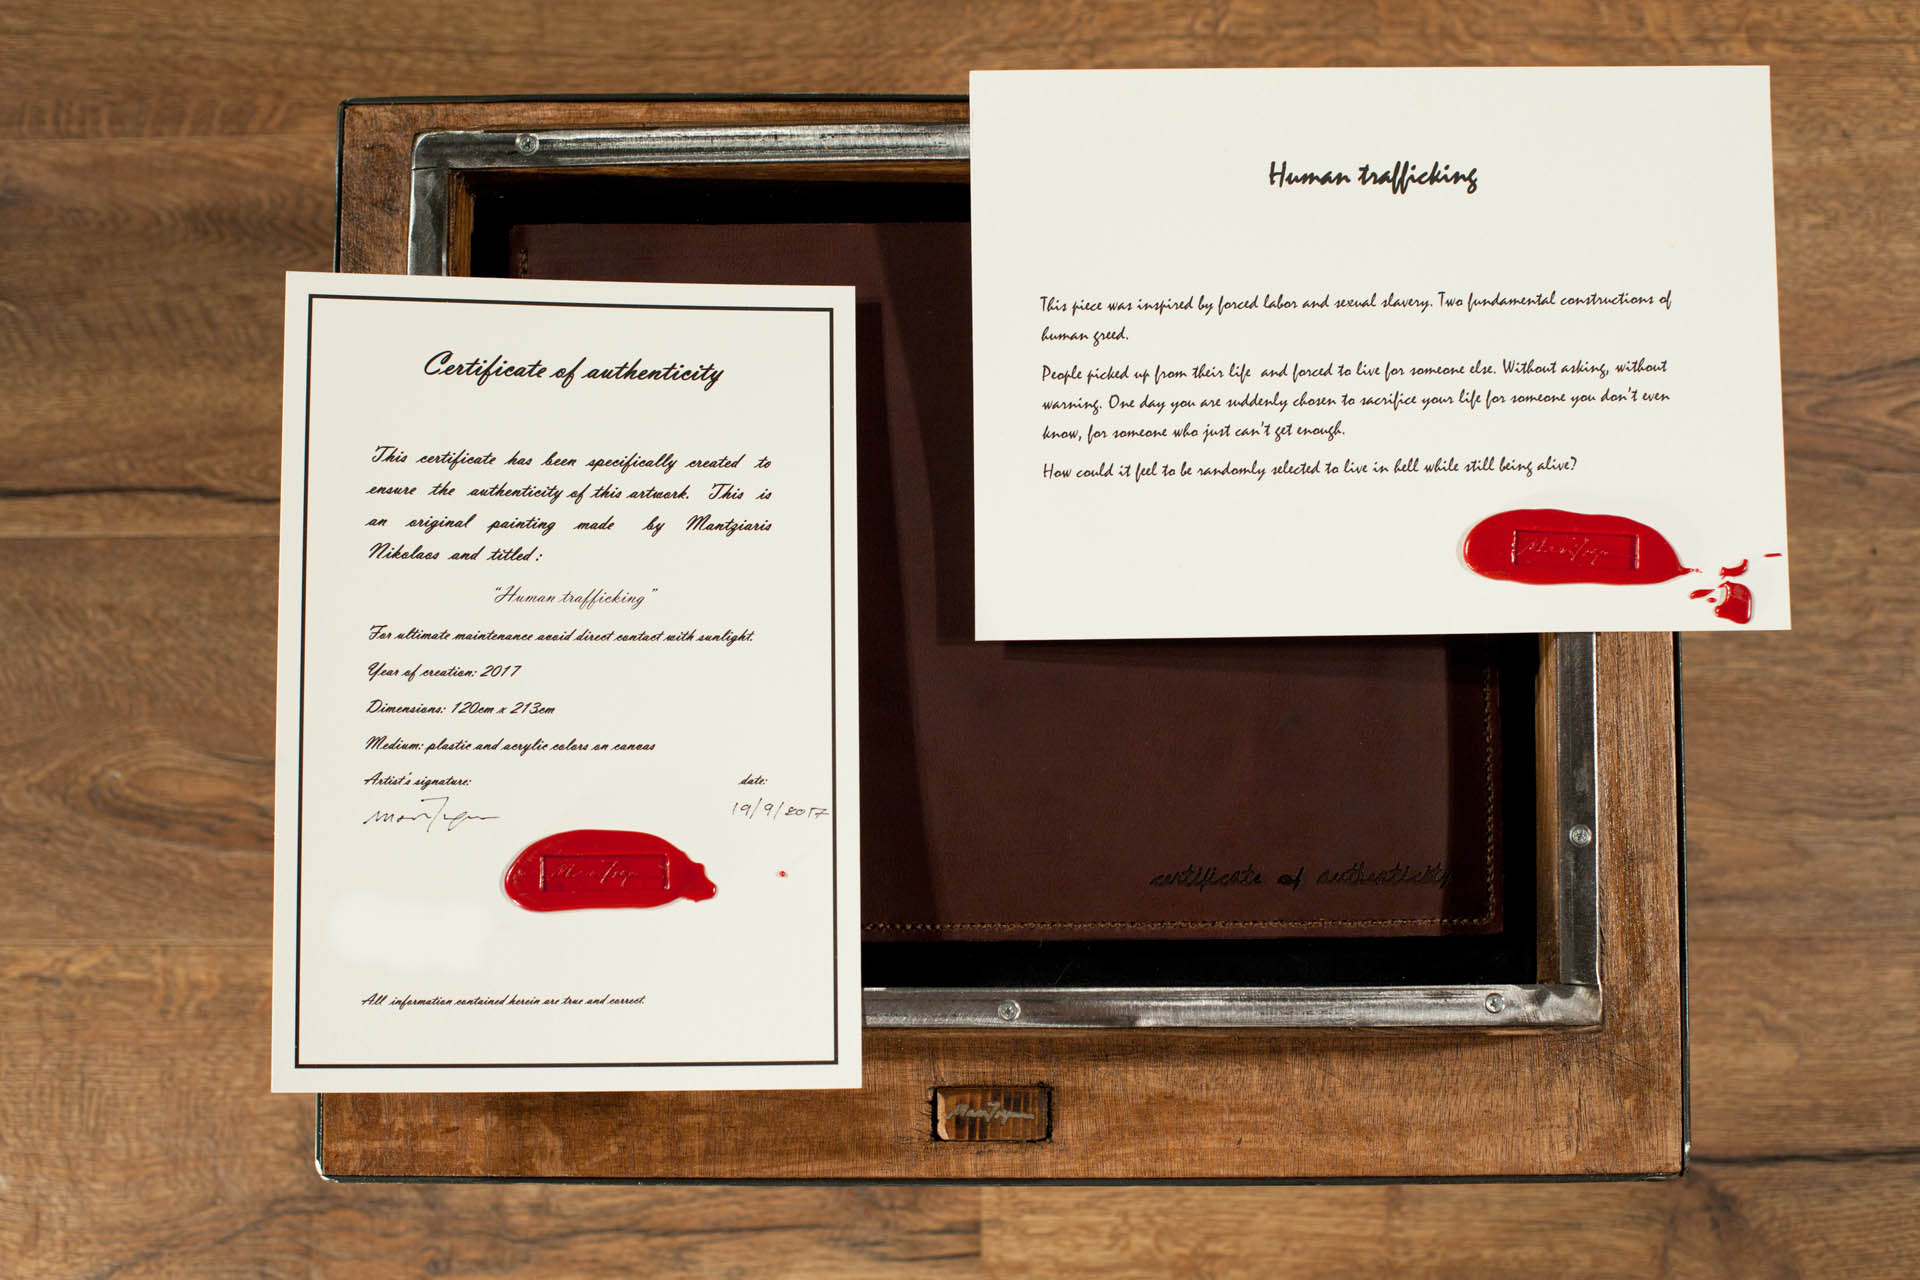 Certificate of authenticity
This certificate has been specifically created to
ensure the authenticity of this artwork. This is
an original painting made by Mantziaris
Nikolaos and titled:
"Human trafficking"
For ultimate maintenance avoid direct contact with sunlight.
Year of creation: 2017
Dimensions: 120cm x 213cm
Medium: plastic and acrylic colors on canvas
Artist's signature: date:
19/9/2017
All information contained herein are true and correct.
Human trafficking
This piece was inspired by forced labor and sexual slavery. Two fundamental constructions of
human greed.
People picked up from their life and forced to live for someone else. Without asking, without
warning. One day you are suddenly chosen to sacrifice your life for someone you don't even
know, for someone who just can't get enough.
How could it feel to be randomly selected to live in hell while still being alive?
certificate of authenticity